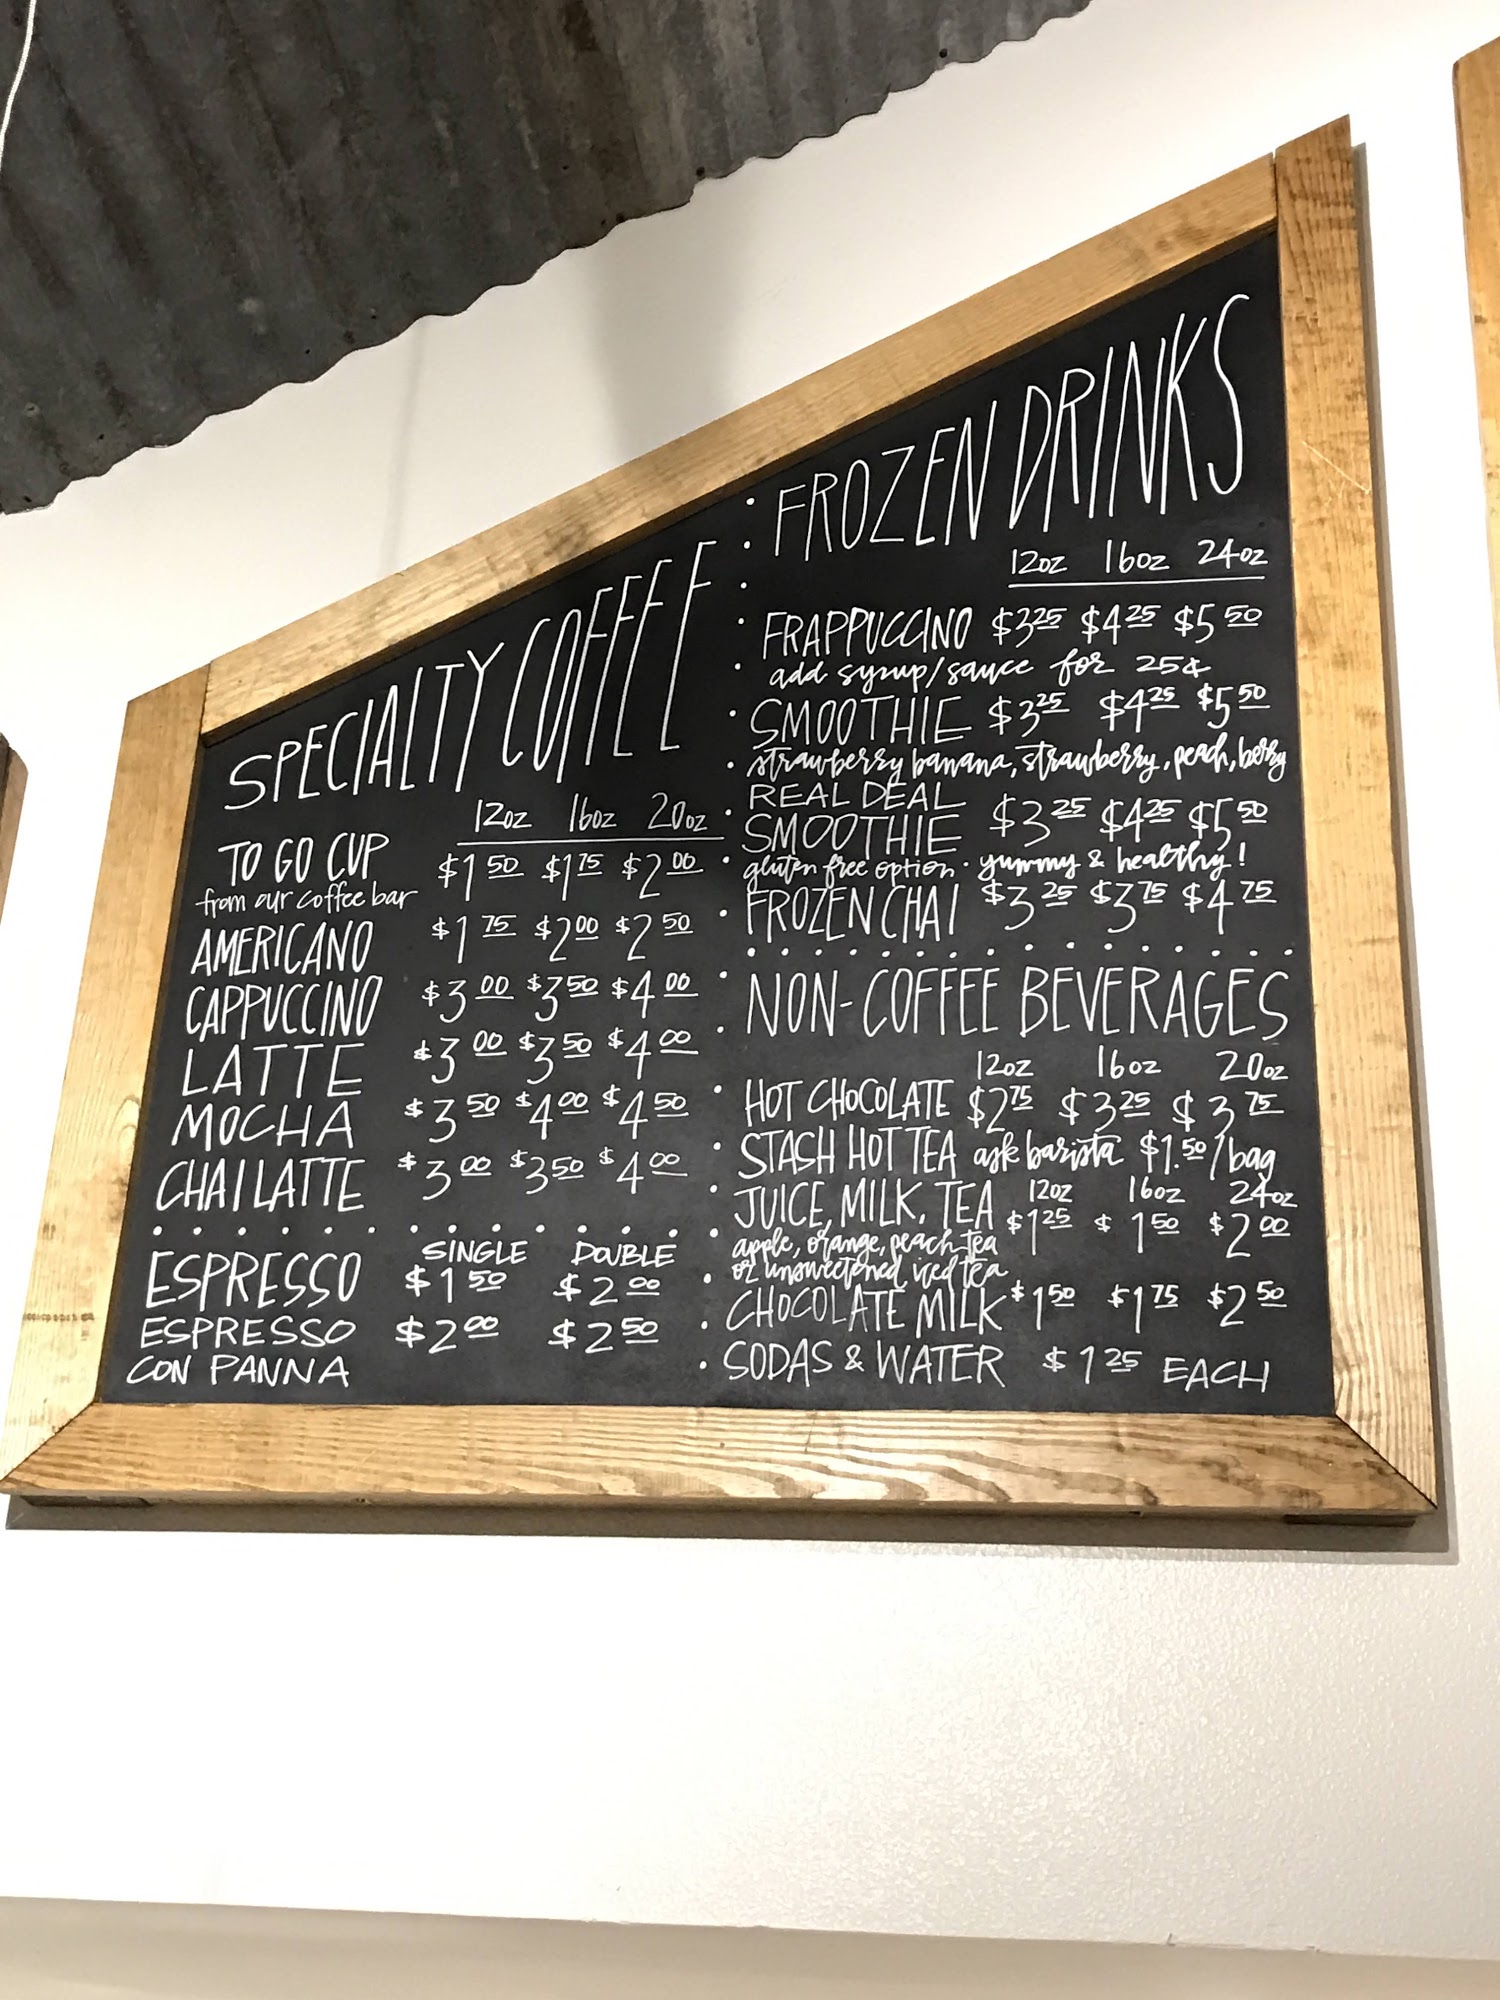 SPECIALTY COFFEE
12oz 16oz 20oz
TO GO CUP $1.50 $1.75 $2.00
from our coffee bar
AMERICANO $1.75 $2.00 $2.50
CAPPUCCINO $3.00 $3.50 $4.00
LATTE $3.00 $3.50 $4.00
MOCHA $3.50 $4.00 $4.50
CHAI LATTE $3.00 $3.50 $4.00
SINGLE DOUBLE
ESPRESSO $1.50 $2.00
ESPRESSO $2.00 $2.50
CON PANNA
FROZEN DRINKS
12oz 16oz 24oz
FRAPPUCCINO $3.25 $4.25 $5.50
add syrup/sauce for 25¢
SMOOTHIE $3.25 $4.25 $5.50
strawberry banana, strawberry, peach, berry
REAL DEAL
SMOOTHIE $3.25 $4.25 $5.50
gluten free option · yummy & healthy!
FROZEN CHAI $3.25 $3.75 $4.75
NON-COFFEE BEVERAGES
12oz 16oz 20oz
HOT CHOCOLATE $2.75 $3.25 $3.75
STASH HOT TEA ask barista $1.50/bag
12oz 16oz 24oz
JUICE, MILK, TEA $1.25 $1.50 $2.00
apple, orange, peach tea
or unsweetened iced tea
CHOCOLATE MILK $1.50 $1.75 $2.50
SODAS & WATER $1.25 EACH